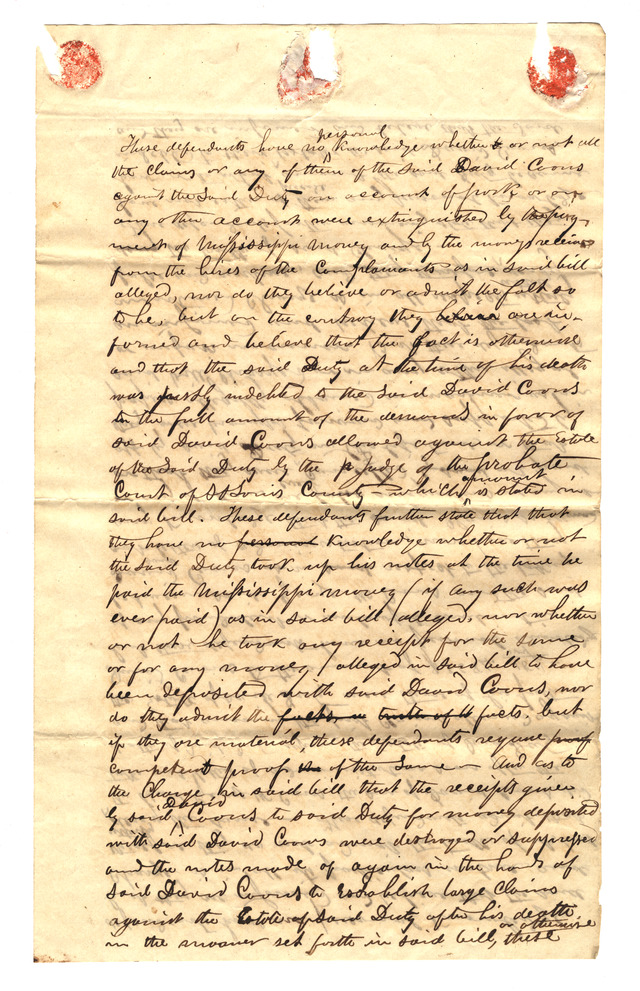 personal
These defendants have no knowledge whether or not all
the claims or any of them of the said David Coons
against the said Duty on account of pork or on
any other account were extinguished by the pay-
ment of Mississippi money and by the money received
from the hires of the Complainants as in said bill
alleged, nor do they believe or admit the fact so
to be, but on the contrary they believe are in-
formed and believe that the fact is otherwise
and that the said Duty at the time of his death
was justly indebted to the said David Coons
in the full amount of the demands in favor of
said David Coons allowed against the Estate
of the said Duty by the p Judge of the probate
amount
Court of St Louis County - which is stated in
said bill. These defendants further state that that
they have no personal knowledge whether or not
the said Duty took up his notes at the time he
paid the Mississippi money (if any such was
ever paid) as in said bill alleged, nor whether
or not he took any receipt for the same
or for any money alleged in said bill to have
been deposited with said David Coons, nor
do they admit the facts, or truth of it facts, but
if they are material, these defendants require proof
competent proof of the same - And as to
the Charge in said bill that the receipts given
David
by said Coons to said Duty for money deposited
with said David Coons were destroyed or suppressed
and the notes made of again in the hands of
said David Coons to Establish large Claims
against the Estate of said Duty after his death
or otherwise
in the manner set forth in said bill, these